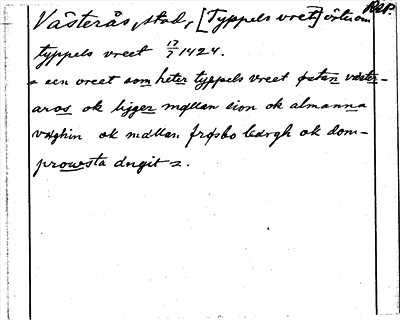 Västerås, stad, [Typpels vret] östuom Rep.
typpels vreet 17/7 1424.
en vreet som heter typpels vreet østan væster-
aros ok ligger mællan sion ok almanna
væghin ok mællan frøsbo bærgh ok dom-
prowesta ængit